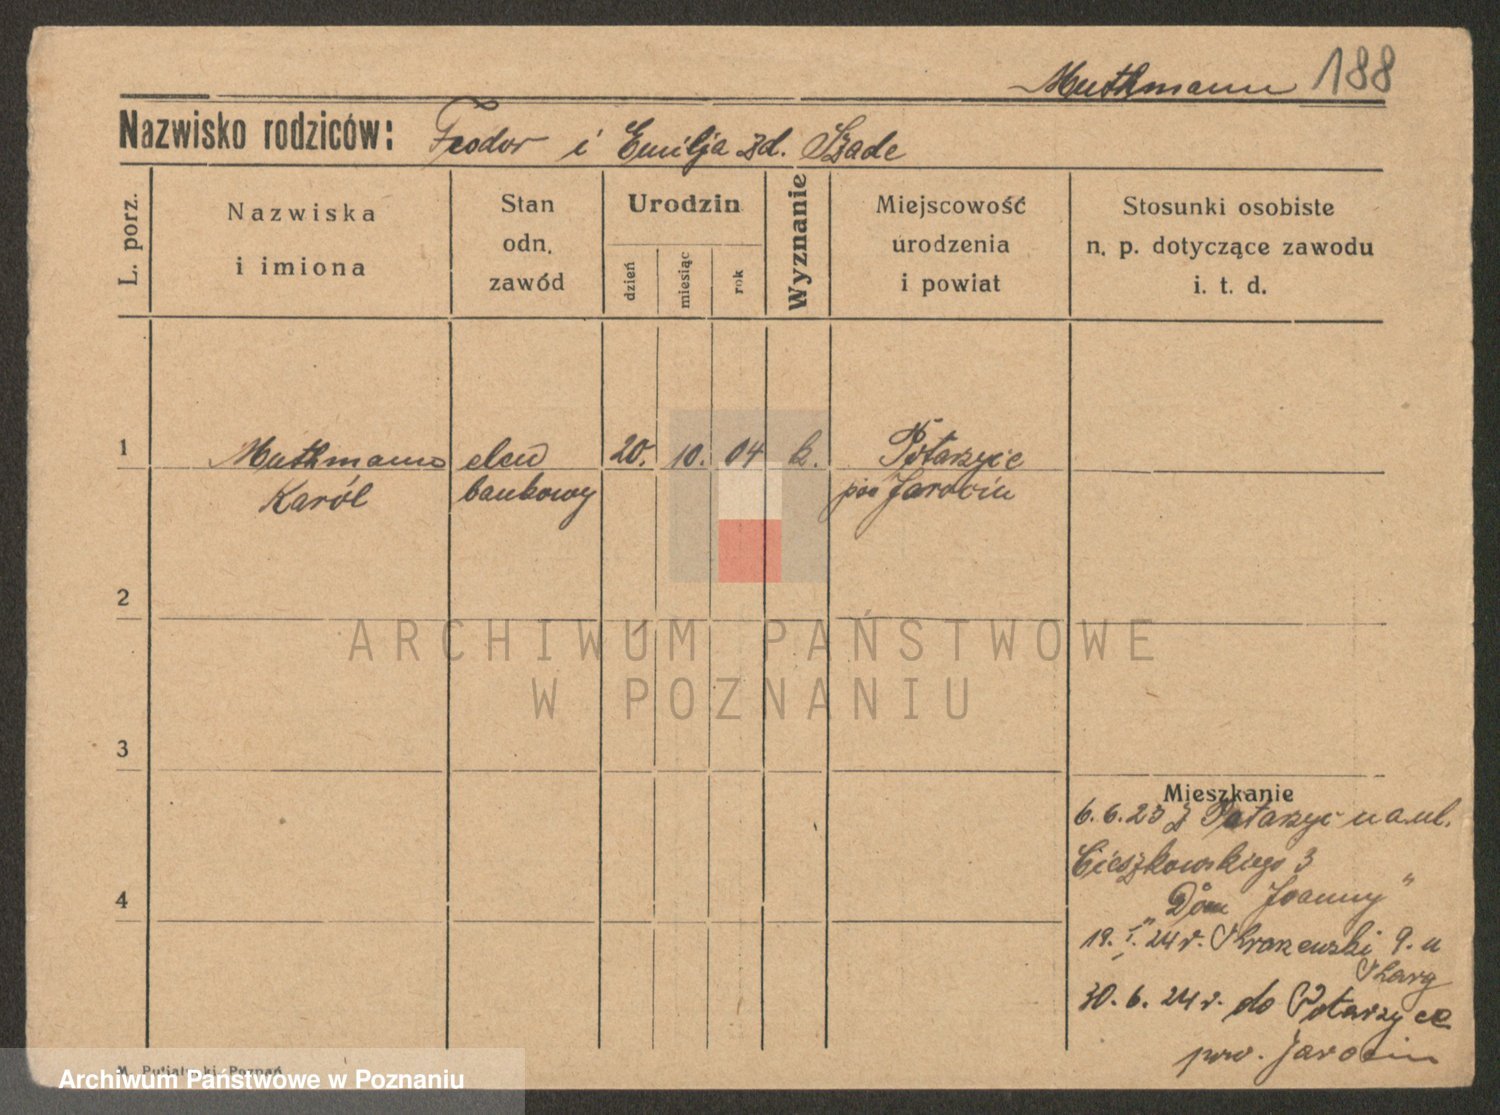 Muthmann 188
Nazwisko rodziców: Feodor i Emilja zd. Szade
L. porz.
Nazwiska
i imiona
Stan
odn.
zawód
Urodzin
dzień
miesiąc
rok
Wyznanie
Miejscowość
urodzenia
i powiat
Stosunki osobiste
n. p. dotyczące zawodu
i. t. d.
1 Muthmann elew 20. 10. 04 k. Potarzyce
Karól bankowy pow Jarocin
2
ARCHIWUM PAŃSTWOWE
W POZNANIU
3
Mieszkanie
6. 6. 23 z Potarzyc na ul.
Cieszkowskiego 3
4
"Dom Joanny"
19. I. 24 r. 9. u
30. 6. 24 r. do Potarzyce
pow. Jarocin
M. Putiatycki, Poznań
Archiwum Państwowe w Poznaniu